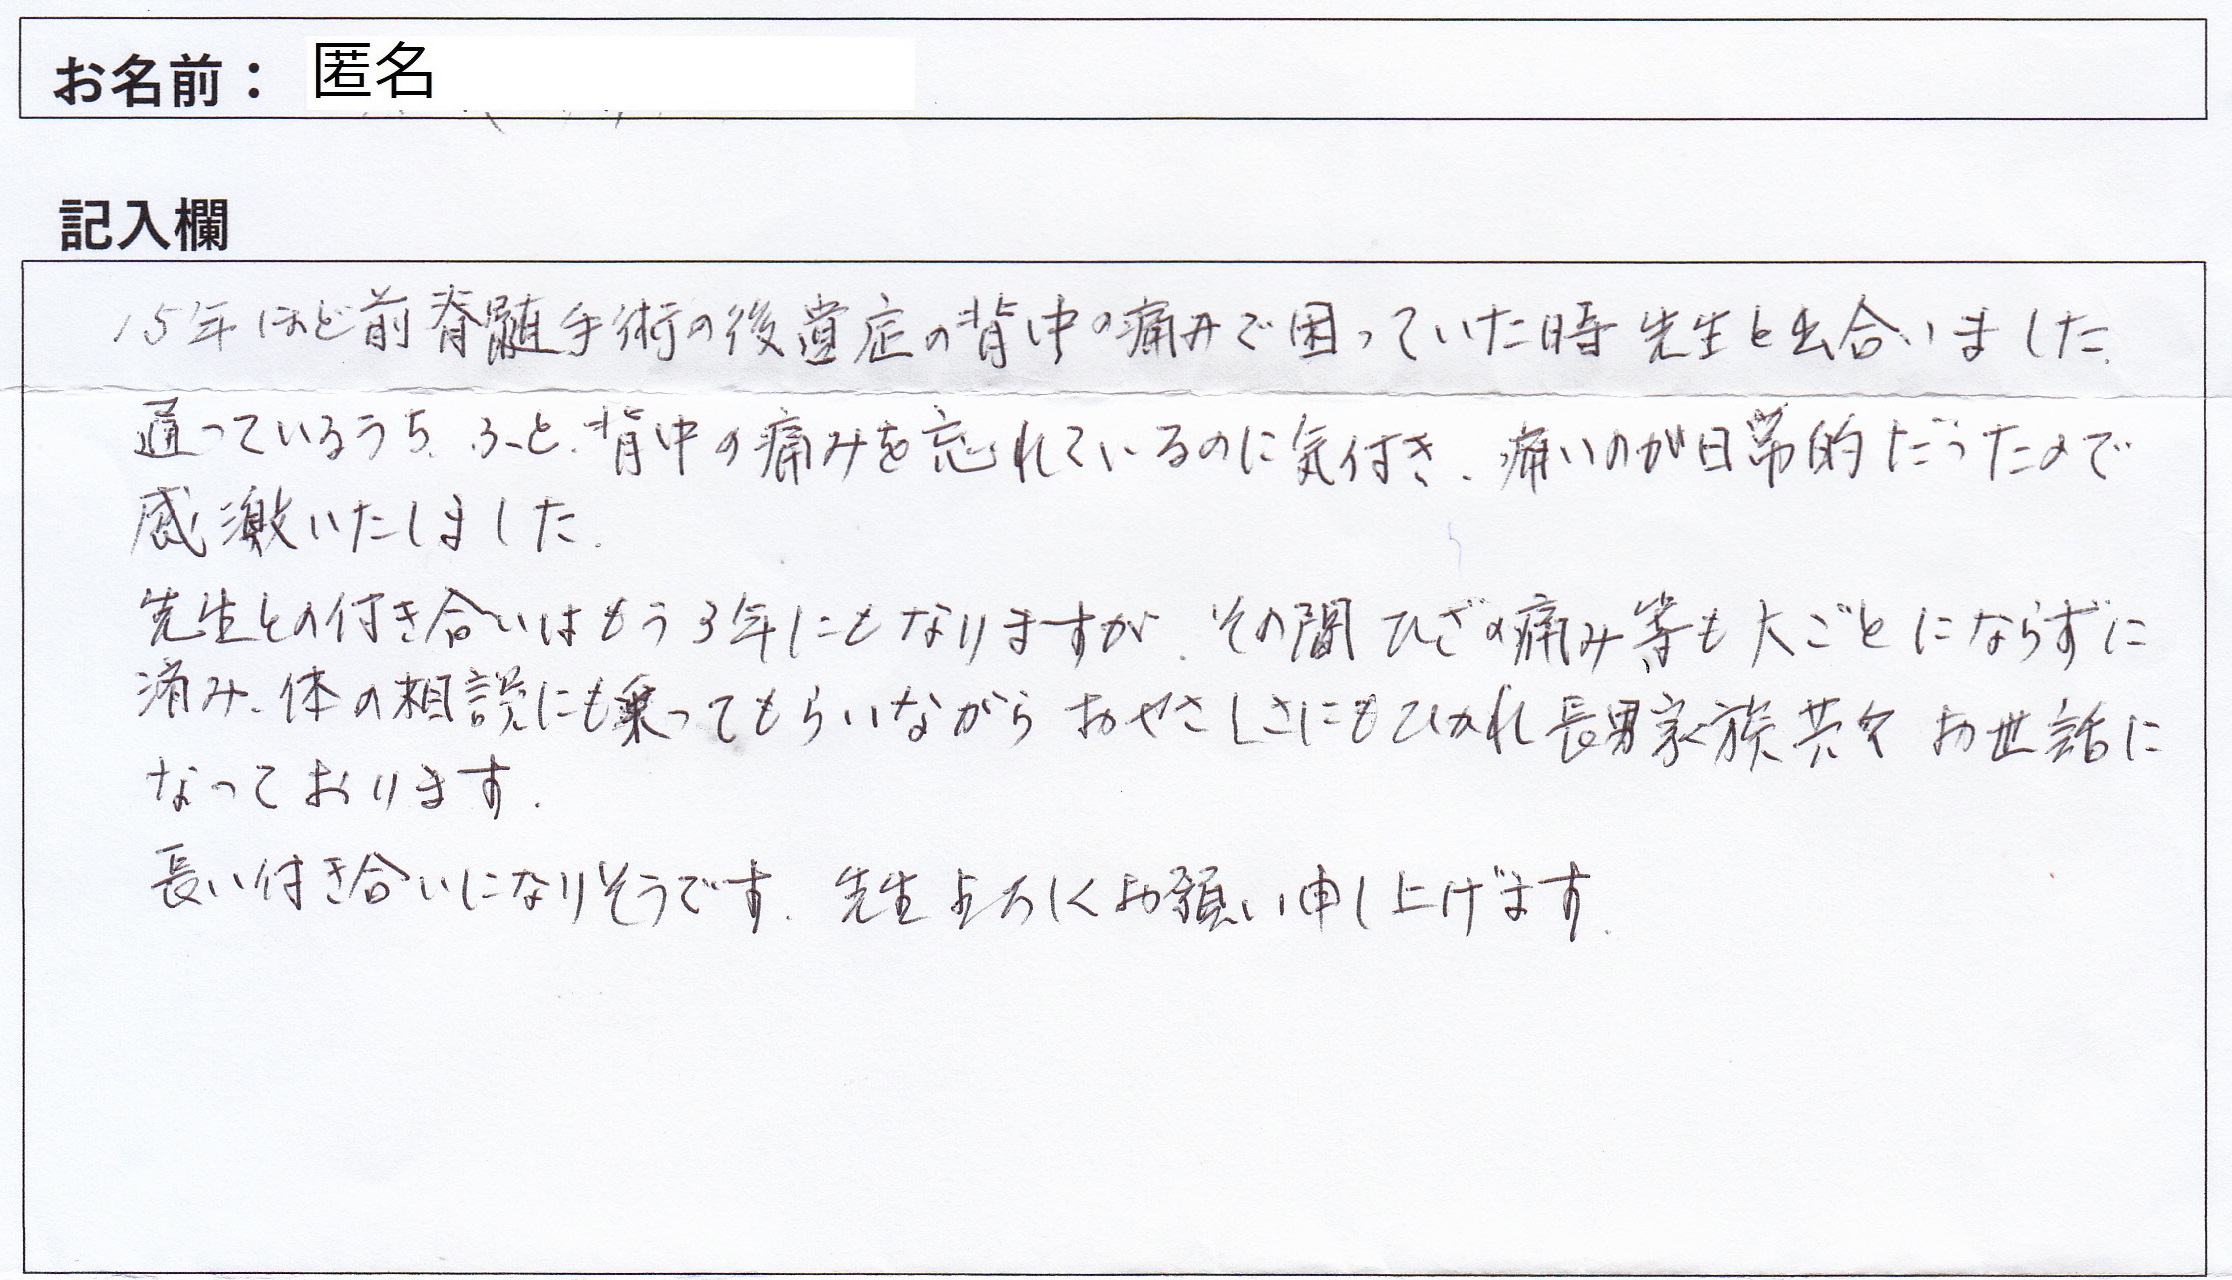 お名前： 匿名
記入欄
15年ほど前脊髄手術の後遺症の背中の痛みで困っていた時 先生と出合いました.
通っているうち、ふと、背中の痛みを忘れているのに気付き、痛いのが日常的だったので
感激いたしました.
先生との付き合いはもう3年にもなりますが、その間 ひざの痛み等も大ごとにならずに
済み、体の相談にも乗ってもらいながら おやさしさにもひかれ 長男家族共々 お世話に
なっております.
長い付き合いになりそうです. 先生よろしくお願い申し上げます.